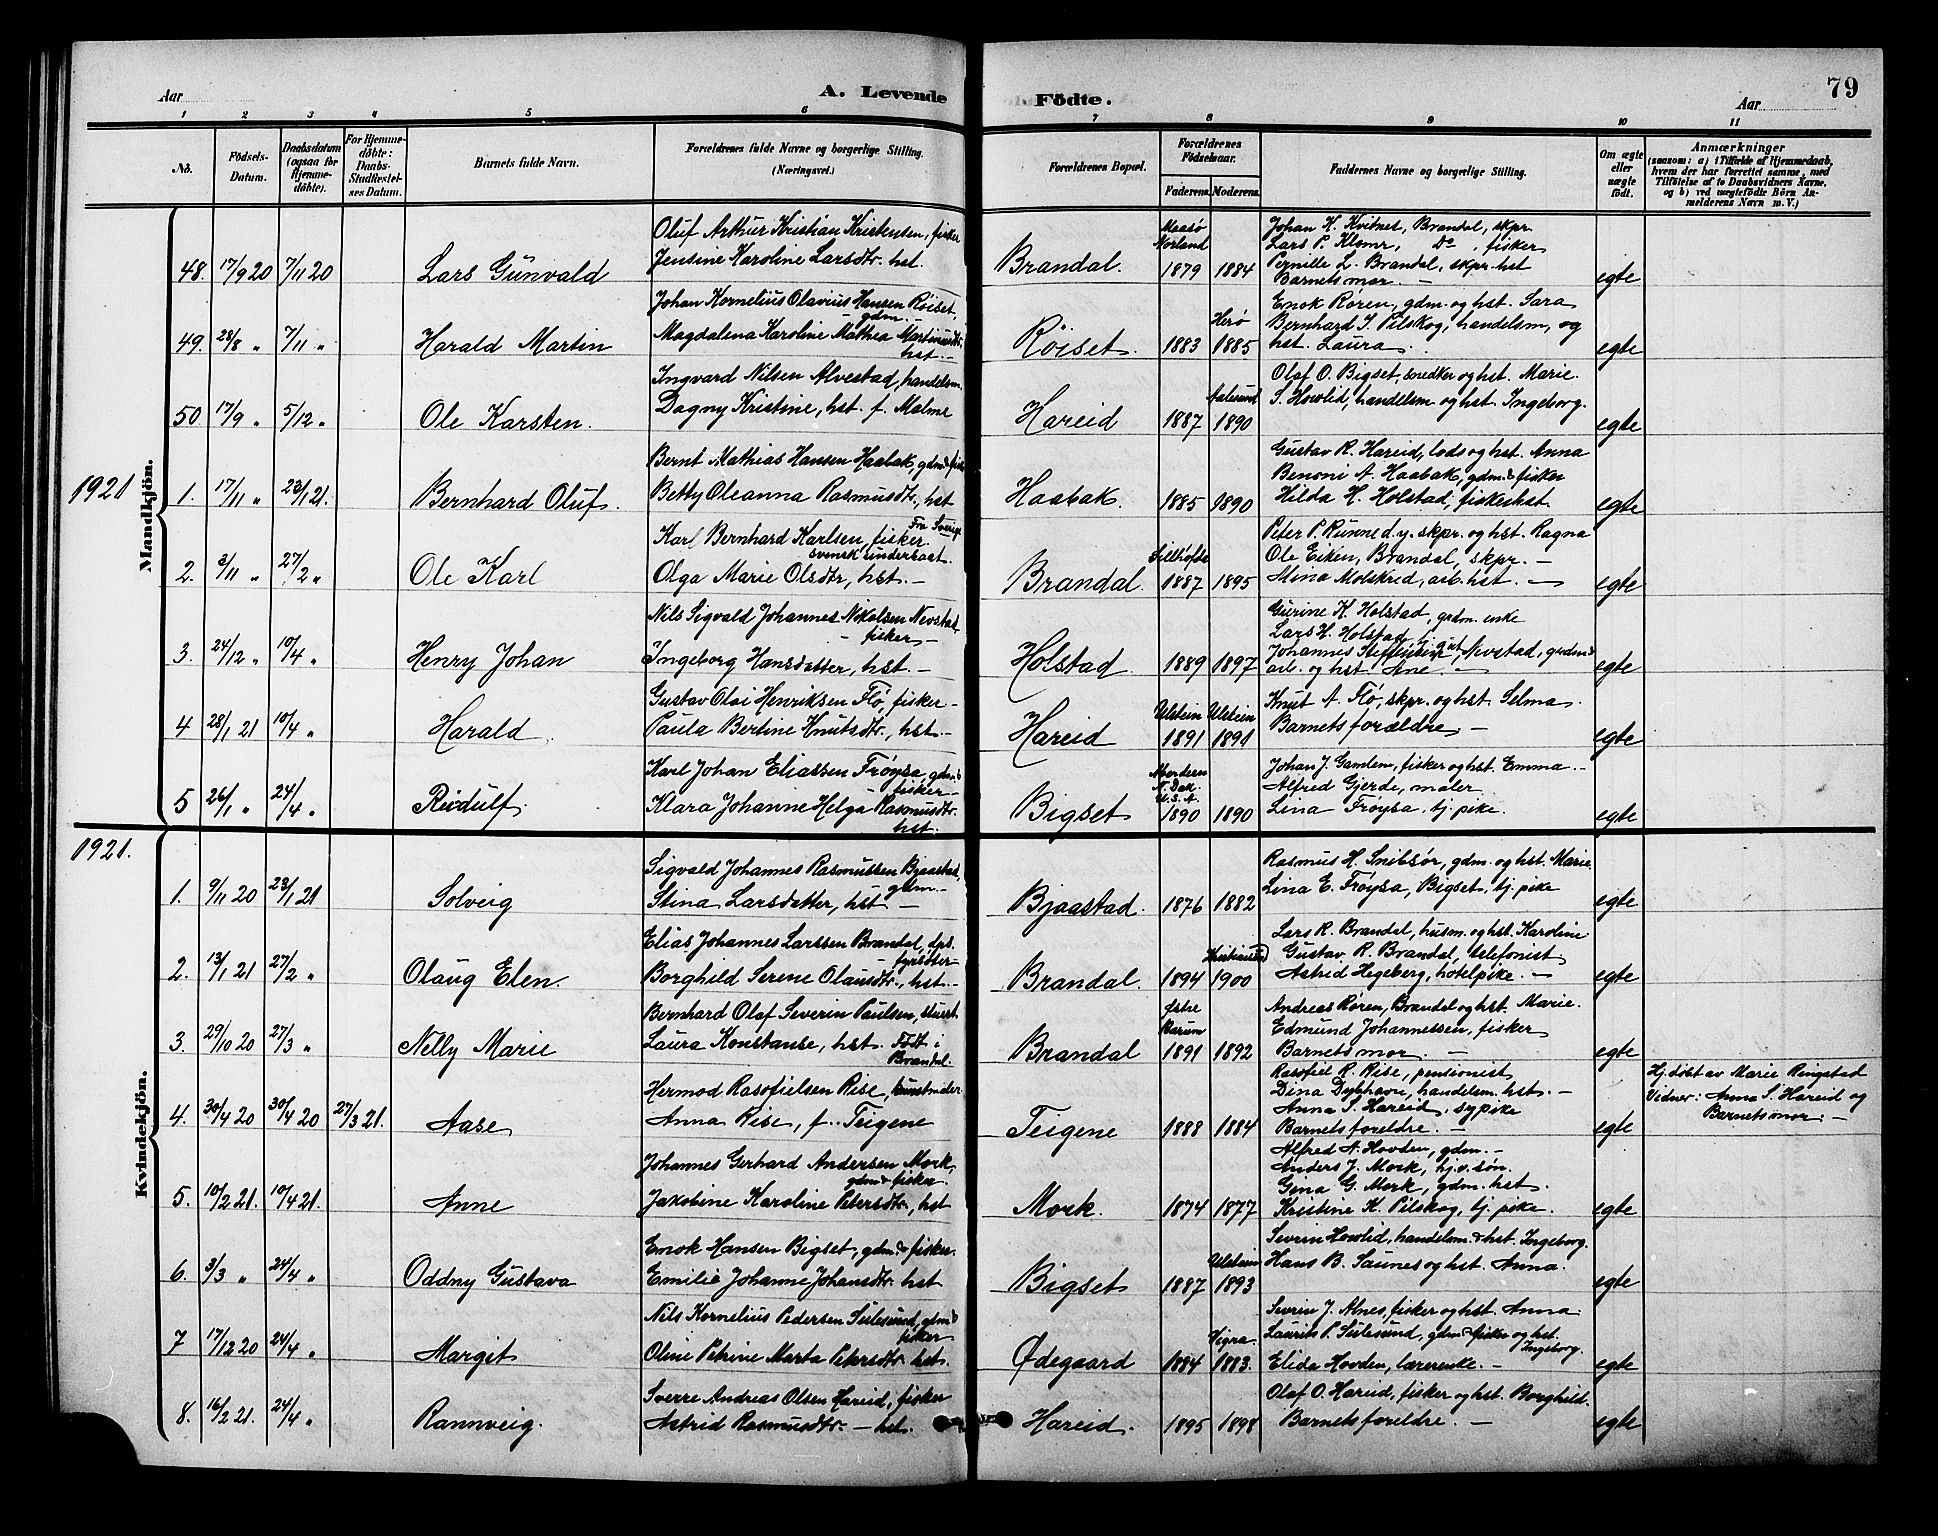 79
Aar A. Levende Födte. Aar
1 2 3 4 5 6 7 8 9 10 11
No. Födsels-Datum. Daabsdatum (ogsaa for Hjemme-døbte). For Hjemme-døbte: Daabs-Stadfæstel-ses Datum. Barnets fulde Navn. Forældrenes fulde Navne og borgerlige Stilling. (Næringsvei.) Forældrenes Bopæl. Forældrenes Födselsaar. Faderens. Moderens. Faddernes Navne og borgerlige Stilling. Om ægte eller uægte født. Anmærkninger
(saasom: a) i Tilfælde af Hjemmedaab,
hvem der har forrettet samme, med
Tilføielse af to Daabsvidners Navne,
og b) ved uægtefødte Börn An-
melderens Navn m. V.)
Mandkjön.
Oluf Arthur Kristian Kristensen, fisker Maasø Norland Johan K. Kvitnes, Brandal, skpr.
Lars P. Klomr, Do, fisker
48. 17/9 20 7/11 20 Lars Gunvald Jensine Karoline Larsdtr. hst. Brandal. 1879 1884 Pernille L. Brandal, skpr. hst egte
Barnets mor. —
Johan Kornelius Olavius Hansen Røiset, gdm. — Herø Enok Røren, gdm. og hst. Sara
49. 28/8 " 7/11 " Harald Martin Magdalena Karoline Mathea Martinusdtr. hst. — Röiset. 1883 1885 Bernhard J. Pilskog, handelsm, og egte
hst. Laura.
Ingvard Nilsen Alvestad, handelsm. Aalesund Olaf O. Bigset, snedker og hst. Marie.
50. 17/9 " 5/12 " Ole Karsten. Dagny Kristine, hst. f. Malme Hareid 1887 1890 S. Hovlid, handelsm og hst. Ingeborg. egte
1921
Bernt Mathias Hansen Haabak, gdm & fisk Gustav R. Hareid, lods og hst. Anna
Benoni A. Haabak, gdm & fisker
1. 17/11 " 23/1 21. Bernhard Oluf. Betty Oleanna Rasmusdtr., hst Haabak. 1885 1890 Hilda H. Holstad, fiskerhst. egte
Karl Bernhard Karlsen, fisker. Fra Sverige svensk undersaat. Peter P. Runne d.y. skpr. og hst. Ragna
Ole Eiken, Brandal, skpr. —
2. 3/11 " 27/2 " Ole Karl Olga Marie Olsdtr, hst. — Brandal. 1887 1895 Mina Molskred, arb. hst. — egte
Nils Sigvald Johannes Nikolsen Nevstad, — fisker — Gurine K. Holstad, grdm. enke
Lars H. Holstad, tj.
3. 24/12 " 10/4 " Henry Johan Ingeborg Hansdatter, hst. — Holstad 1889 1897 Johannes Nevstad, grdm & egte
arb. og hst. Ane. —
Gustav Olai Henriksen Flø, fisker — Ulstein Ulstein Knut A. Flø, skpr. og hst. Selma.
4 28/1 21 10/4 " Harald. Paula Bertine Knutsdtr., hst. — Hareid 1891 1891 Barnets forældre. — egte
Karl Johan Eliassen Frøysa, gdm & fisker — N. Dak. U.S.A. Johan J. Gamlem, fisker og hst. Emma. —
Alfred Gjerde, maler
5 26/1 " 24/4 " Reidulf. Klara Johanne Helga Rasmusdtr. hst. Bigset 1890 1890 Lina Frøysa, tj. pike. egte
1921.
Kvindekjön.
Sigvald Johannes Rasmussen Bjaastad, gdm. — Rasmus H. Snibsør, gdm. og hst. Marie.
1. 9/11 20 23/1 21 Solveig Stina Larsdatter, hst — Bjaastad. 1876 1882 Lina E. Frøysa, Bigset, tj. pike egte
Elias Johannes Larssen Brandal, dps. fyrbøter — Kristiansund Lars R. Brandal, husm. og hst. Karoline
Gustav R. Brandal, telefonist
2. 13/1 21 27/2 " Olaug Elen. Borghild Serene Olausdtr., hst. — Brandal. 1894 1900 Astrid Hegeberg, hotelpike. — egte
Bernhard Olaf Severin Paulsen, stuert Østre Bærum Andreas Røren, Brandal og hst. Marie.
Edmund Johannessen, fisker
3. 29/10 20 27/3 " Nelly Marie Laura Konstanse, hst. Født i Brandal. Brandal 1891 1892 Barnets mor. — egte
Hermod Rasofielsen Rise, kunstmaler Rasofiel R. Rise, pensionist
Dina Dybhavn, handelsm. hst. — Hj. døbt av Marie Ringstad
Anna S. Hareid, sypike Vidner: Anna S. Hareid og
4. 30/4 20 30/4 20 27/3 21. Aase Anna Rise, f. Teigene Teigene 1888 1884 Barnets foreldre. — egte Barnets mor. —
Johannes Gerhard Andersen Mork, gdm & fisker. Alfred N. Hovden, gdm. —
Anders J. Mork, hj.v. søn.
Gina G. Mork, gdm. hst.
5. 10/2 21. 10/4 21. Anne Jakobine Karoline Petersdtr., hst Mork. 1874 1877 Kristine K. Pilskog, tj. pike. egte
Enok Hansen Bigset, gdm & fisker. Ulstein Severin Hovlid, handelsm. & hst. Ingeborg.
6. 3/3 " 24/4 " Oddny Gustava Emilie Johanne Johansdtr. hst Bigset 1887 1893 Hans B. Saunes og hst. Anna. egte
Nils Kornelius Pedersen Sulesund, gdm & fisker Vigra Severin J. Alnes, fisker og hst. Anna.
Laurits P. Sulesund, gdm & fisker og hst. Ingeborg.
7 17/12 20 24/4 " Margit Oline Petrine Marta Petersdtr. hst. Ødegaard 1884 1883. Elida Hovden, lærerenke. — egte
Sverre Andreas Olsen Hareid, fisker Olaf O. Hareid, fisker og hst. Borghild.
8. 16/2 21. 24/4 " Rannveig. Astrid Rasmusdtr. — hst. Hareid. 1895 1898 Barnets foreldre. — egte